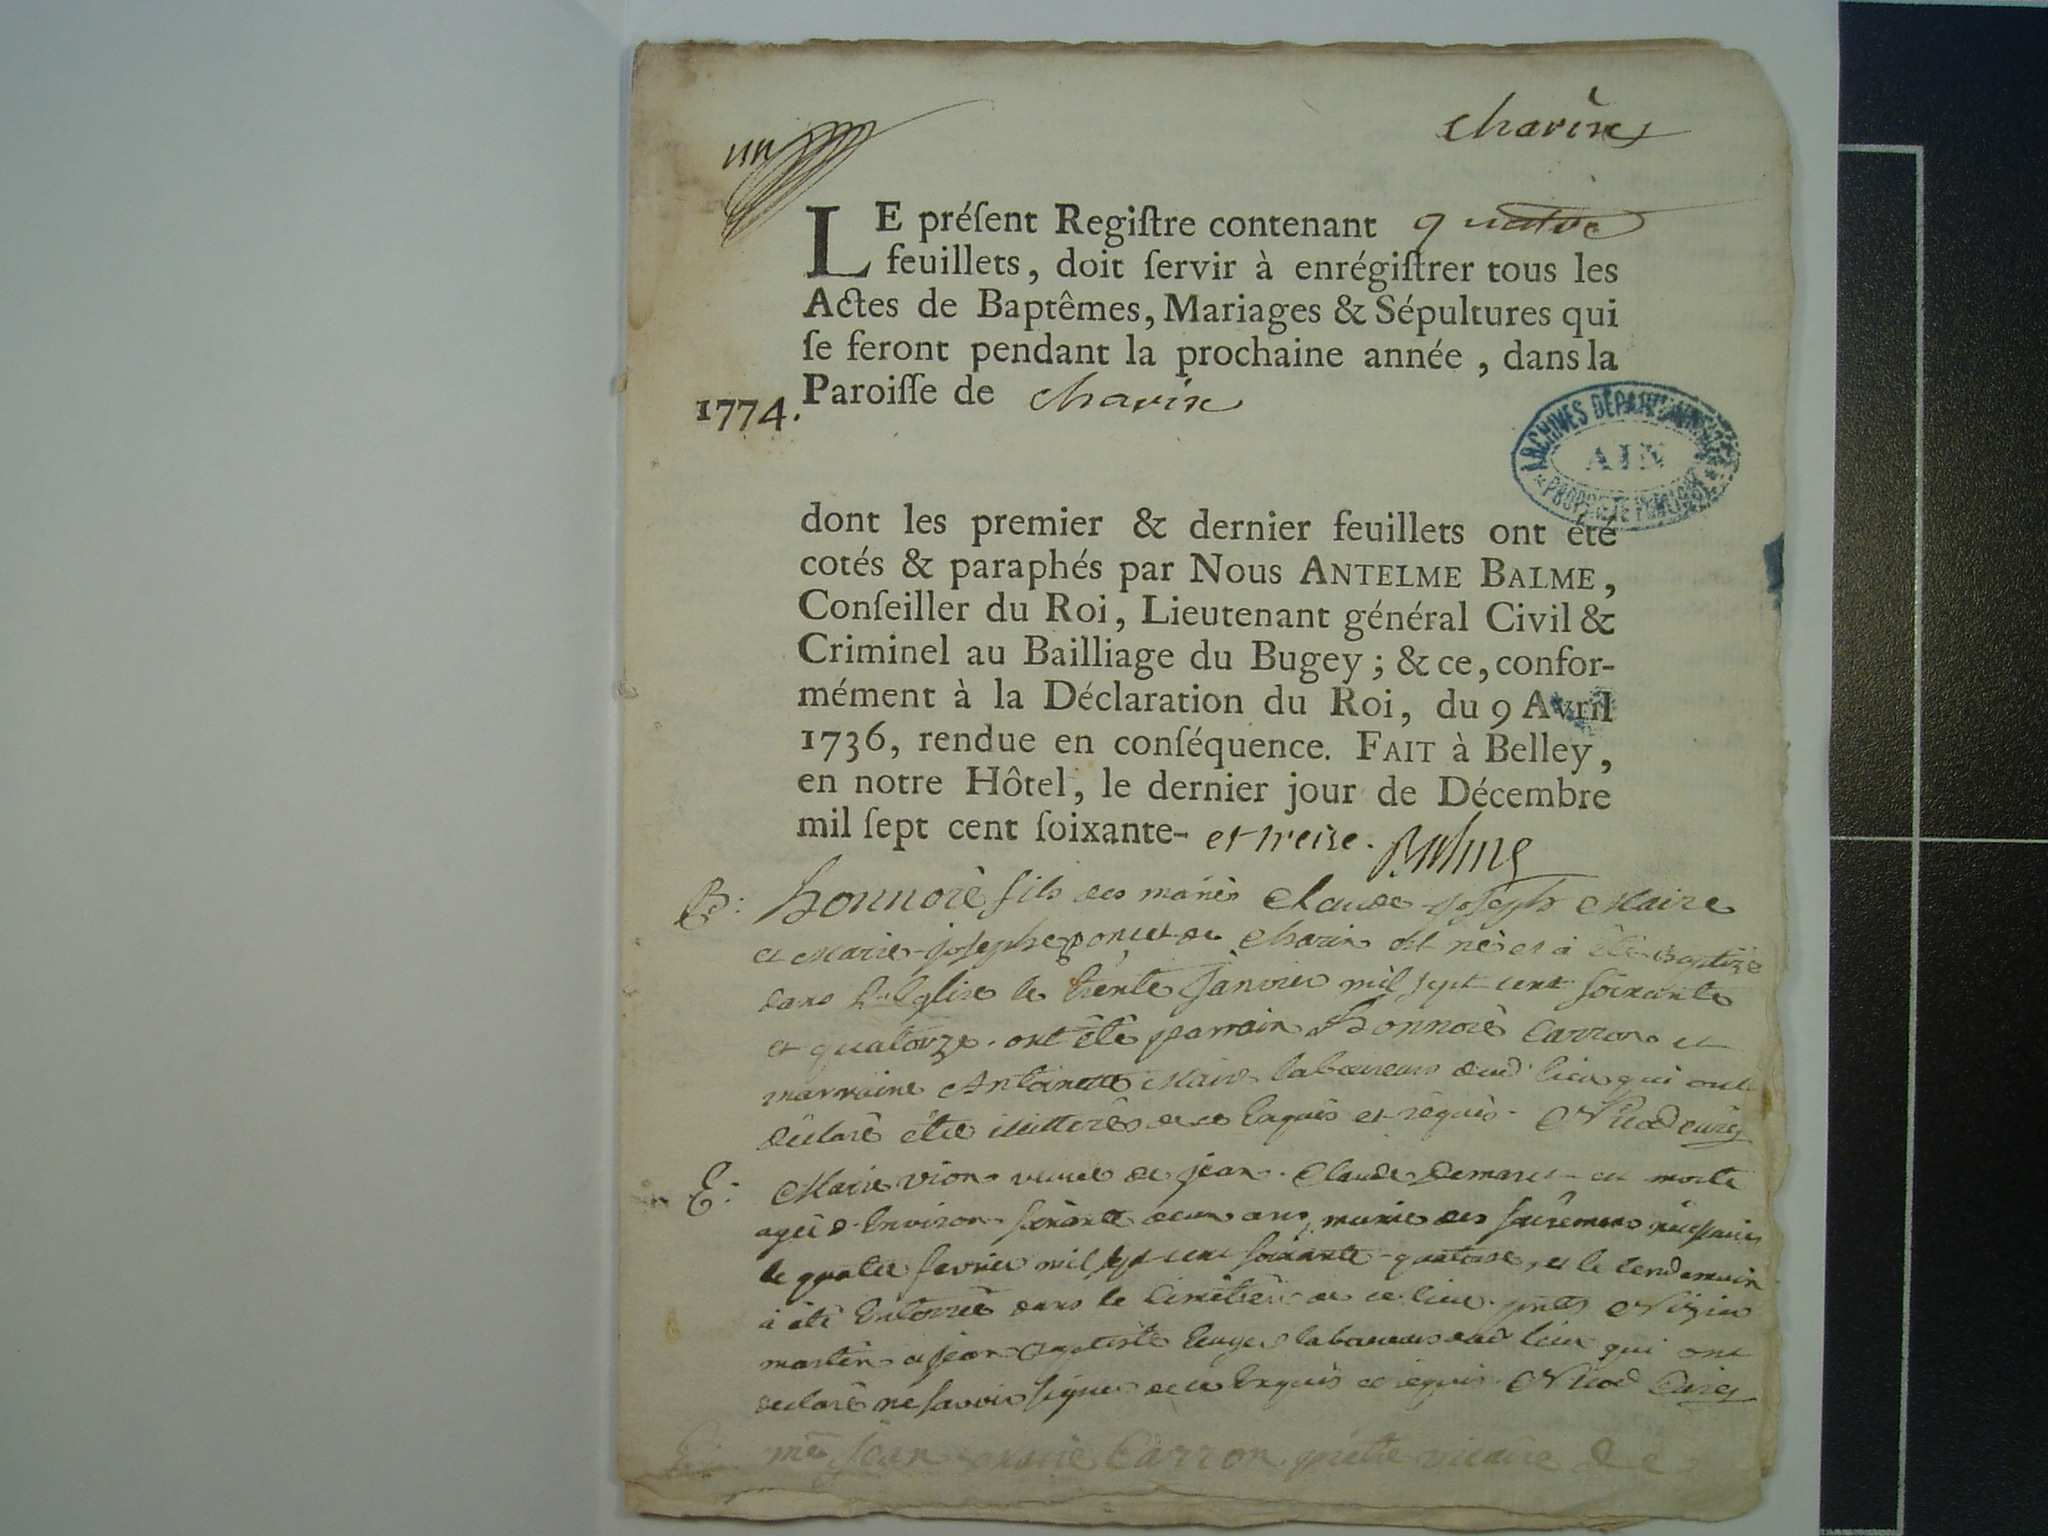 un
charin
LE préſent Regiſtre contenant quatre
feuillets, doit ſervir à enrégiſtrer tous les
Actes de Baptêmes, Mariages & Sépultures qui
ſe feront pendant la prochaine année, dans la
1774. Paroiſſe de charin
ARCHIVES DÉPARTEMENTALES
AIN
PROPRIÉTÉ PUBLIQUE
dont les premier & dernier feuillets ont été
cotés & paraphés par Nous ANTELME BALME,
Conſeiller du Roi, Lieutenant général Civil &
Criminel au Bailliage du Bugey; & ce, confor-
mément à la Déclaration du Roi, du 9 Avril
1736, rendue en conſéquence. FAIT à Belley,
en notre Hôtel, le dernier jour de Décembre
mil ſept cent ſoixante- et treize. Balme
B: honnorè fils des mariès Claude joseph Maire
et Marie-josephe poncet de Charin est nè et à étè Baptizè
dans L'Eglise le trente Janvier mil sept cent soixante
et quatorze. ont étè parrain honnorè Carron et
marraine Antoinette Maire laboureurs dud' lieu qui ont
dèclarè étre illitterès de ce Enquis et requis. Nicod curé
E: Marie vion veuve de jean Claude Demaret est morte
agèe d'Environ soixante deux ans, munie des sacremens nècessaires
le quatre fevrier mil sept cent soixante-quatorze, et le lendemain
à étè Enterrèe dans le Cimètière de ce lieu. prnts Nizier
martin et jean Baptiste laboureurs dud lieu qui ont
declarè ne savoir signer de ce Enquis et requis. Nicod Curé
E: mre jean marie Carron prêtre vicaire de